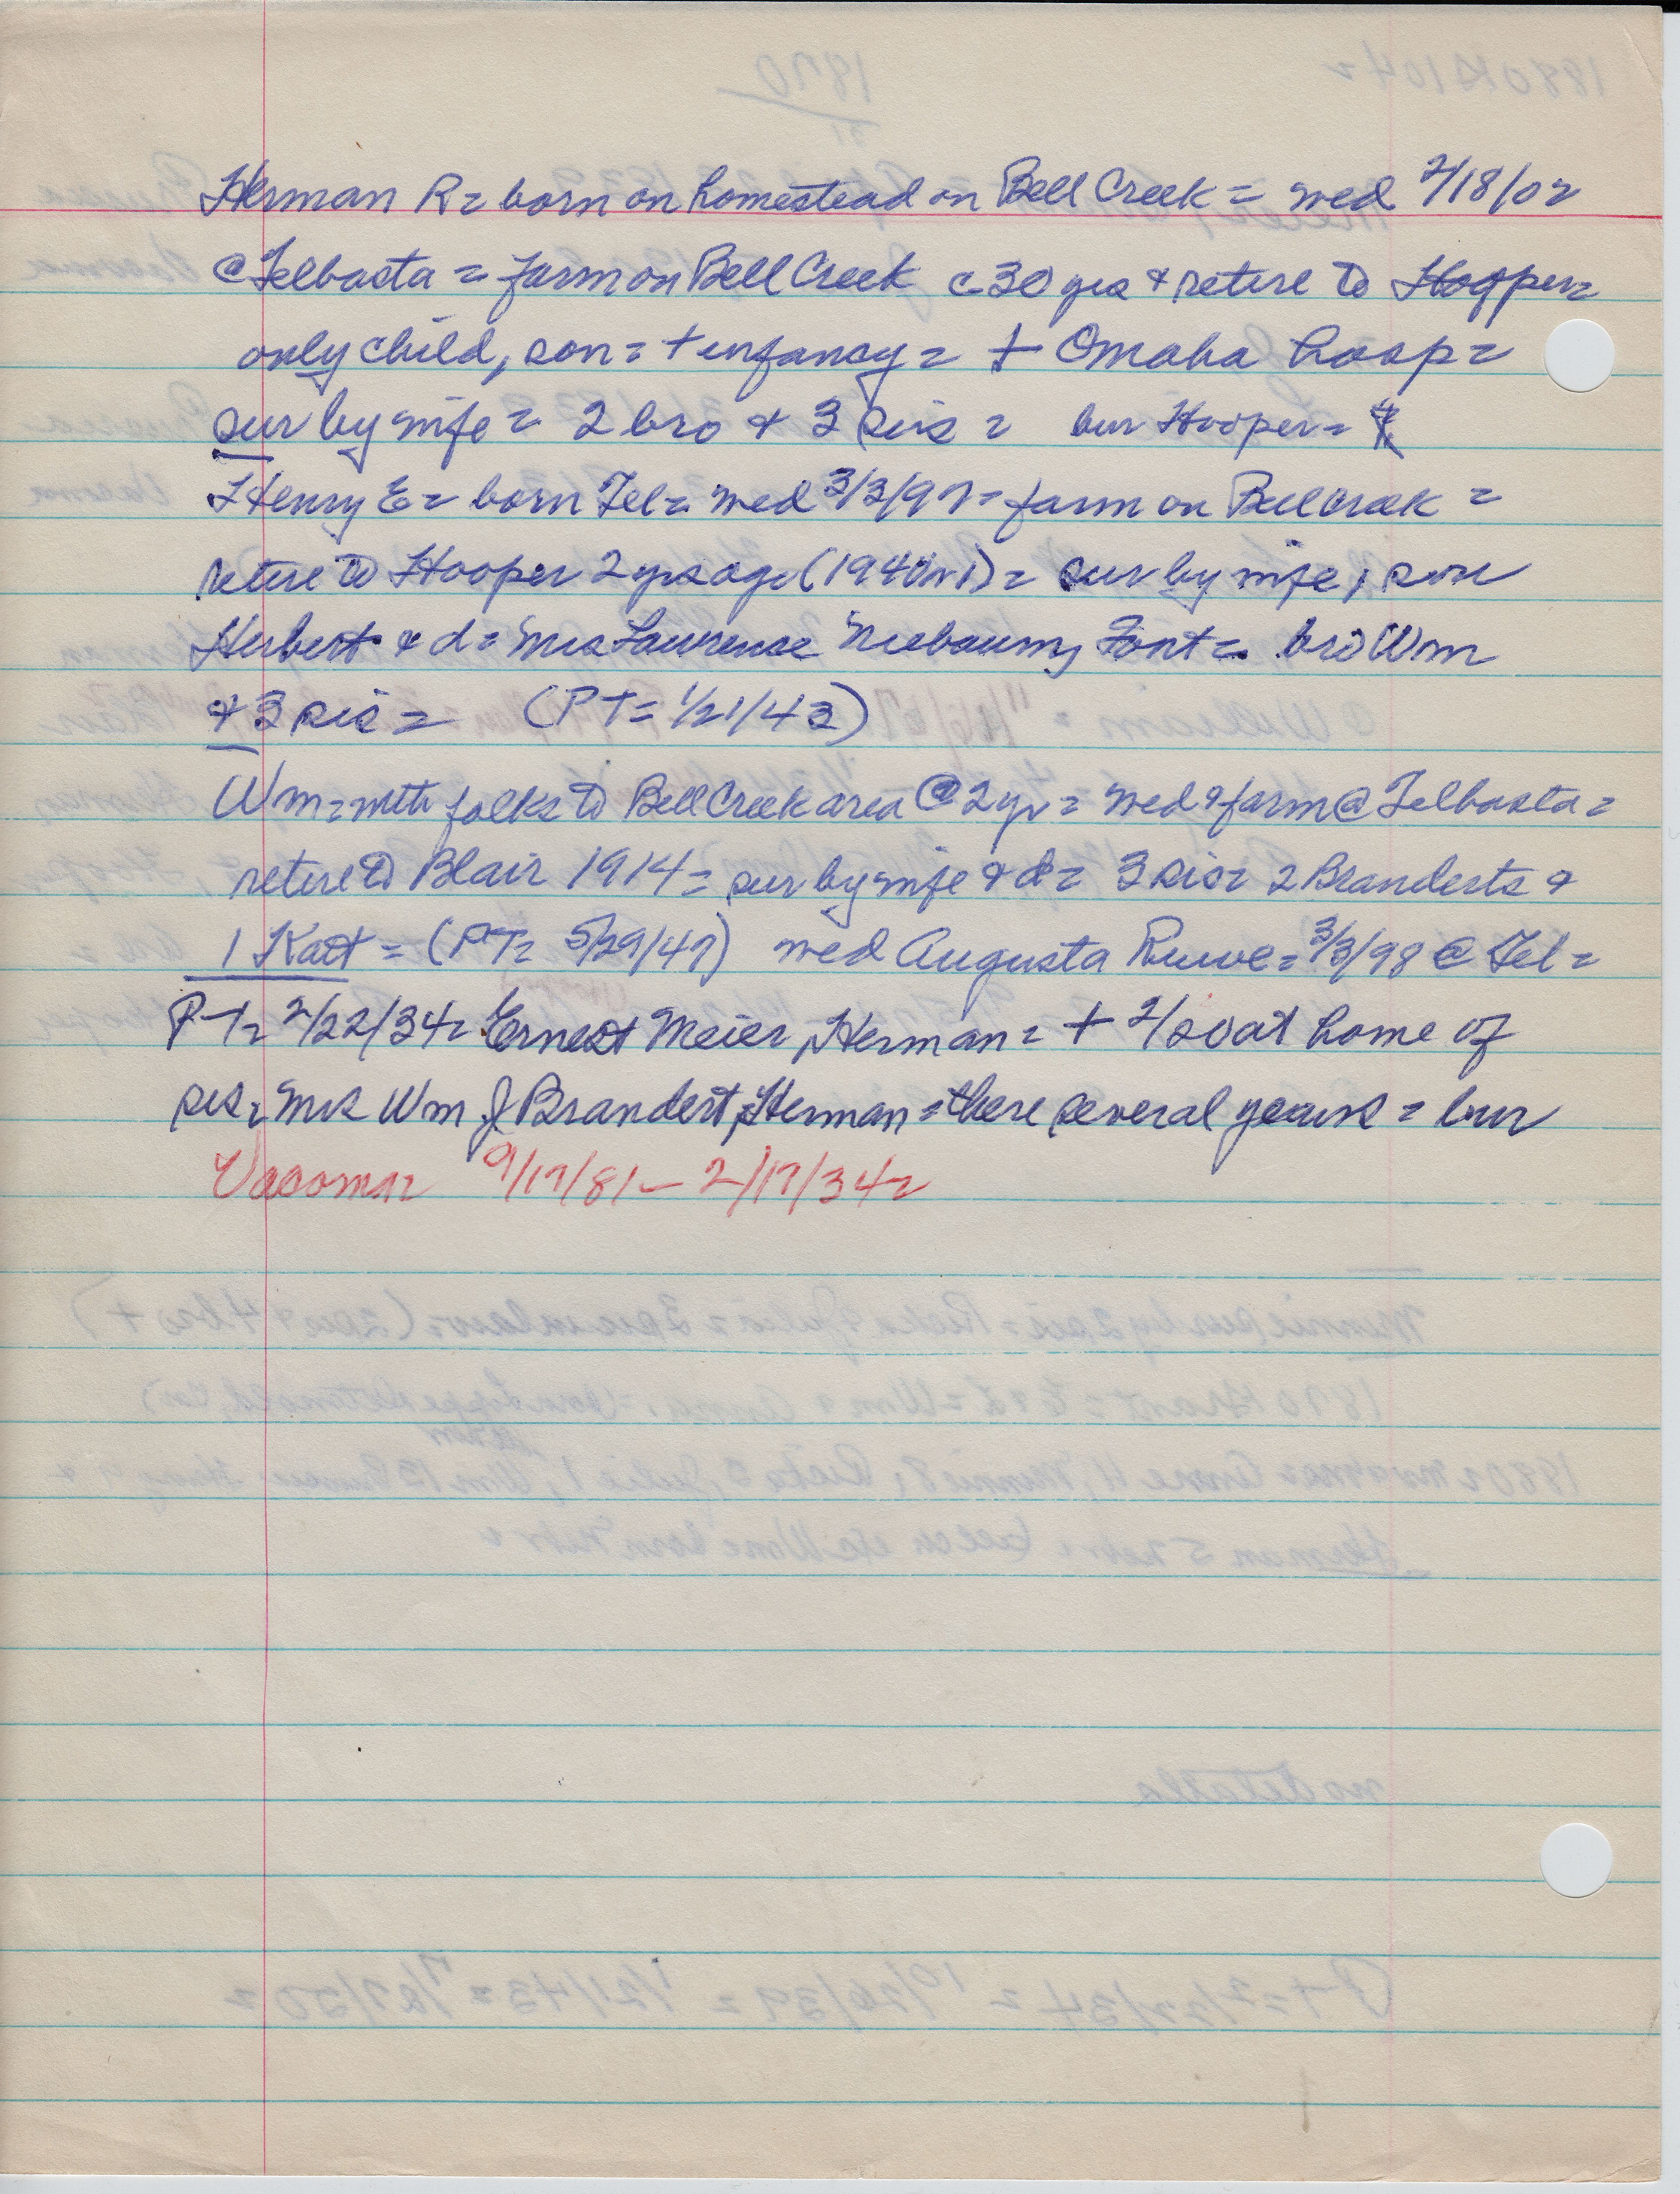 Herman R = born on homestead on Bell Creek = wed 2/18/02
@ Telbasta = farm on Bell Creek c 30 yrs & retire to Hooper =
only child, son = + infancy = + Omaha hosp =
sur by wife = 2 bro & 3 sis = bur Hooper =
Henry E = born Tel = wed 3/3/97 = farm on Bell Creek =
retire to Hooper 2 yrs ago (1940 or 1) = sur by wife, son
Herbert & d = Mrs Lawrence Niebaum, Font = bro Wm
& 3 sis = (PT = 1/21/43)
Wm = with folks to Bell Creek area @ 2 yr = wed & farm @ Telbasta =
retire to Blair 1914 = sur by wife & d = 3 sis = 2 Branderts &
1 Katt = (PT = 5/29/47) wed Augusta Ruwe = 3/3/98 @ Tel =
PT = 2/22/34 = Ernest Meier, Herman = + 2/20 at home of
sis = Mrs Wm J Brandert, Herman = there several years = bur
Vacoma = 9/17/81 – 2/17/34 =